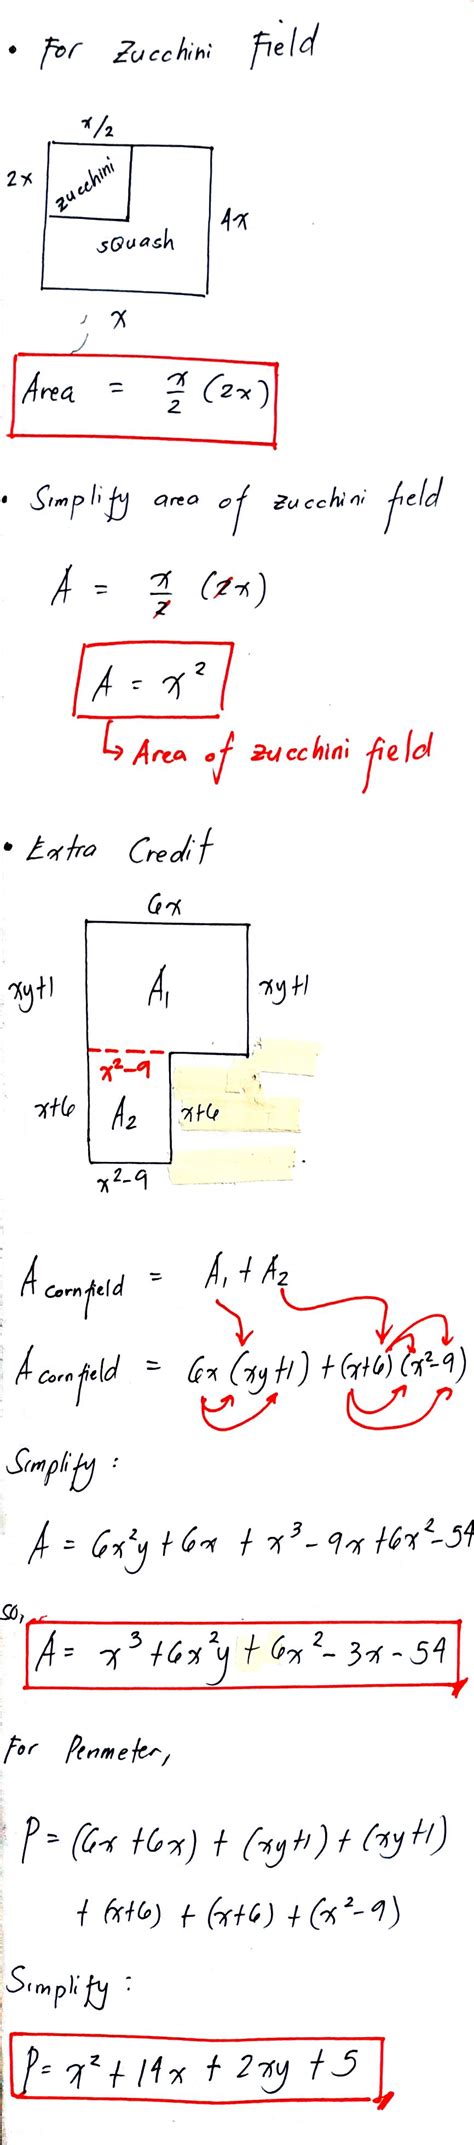 • For Zucchini Field
x/2
2x
zucchini
squash
4x
x
Area = x/2 (2x)
• Simplify area of zucchini field
A = x/2 (2x)
A = x²
↳ Area of zucchini field
• Extra Credit
6x
xy+1
A₁
xy+1
x²-9
x+6
A₂
x+6
x²-9
A cornfield = A₁ + A₂
A cornfield = 6x (xy+1) + (x+6) (x²-9)
Simplify :
A = 6x²y + 6x + x³ - 9x + 6x² - 54
so,
A = x³ + 6x²y + 6x² - 3x - 54
For Perimeter,
P = (6x + 6x) + (xy+1) + (xy+1)
+ (x+6) + (x+6) + (x²-9)
Simplify :
P = x² + 14x + 2xy + 5